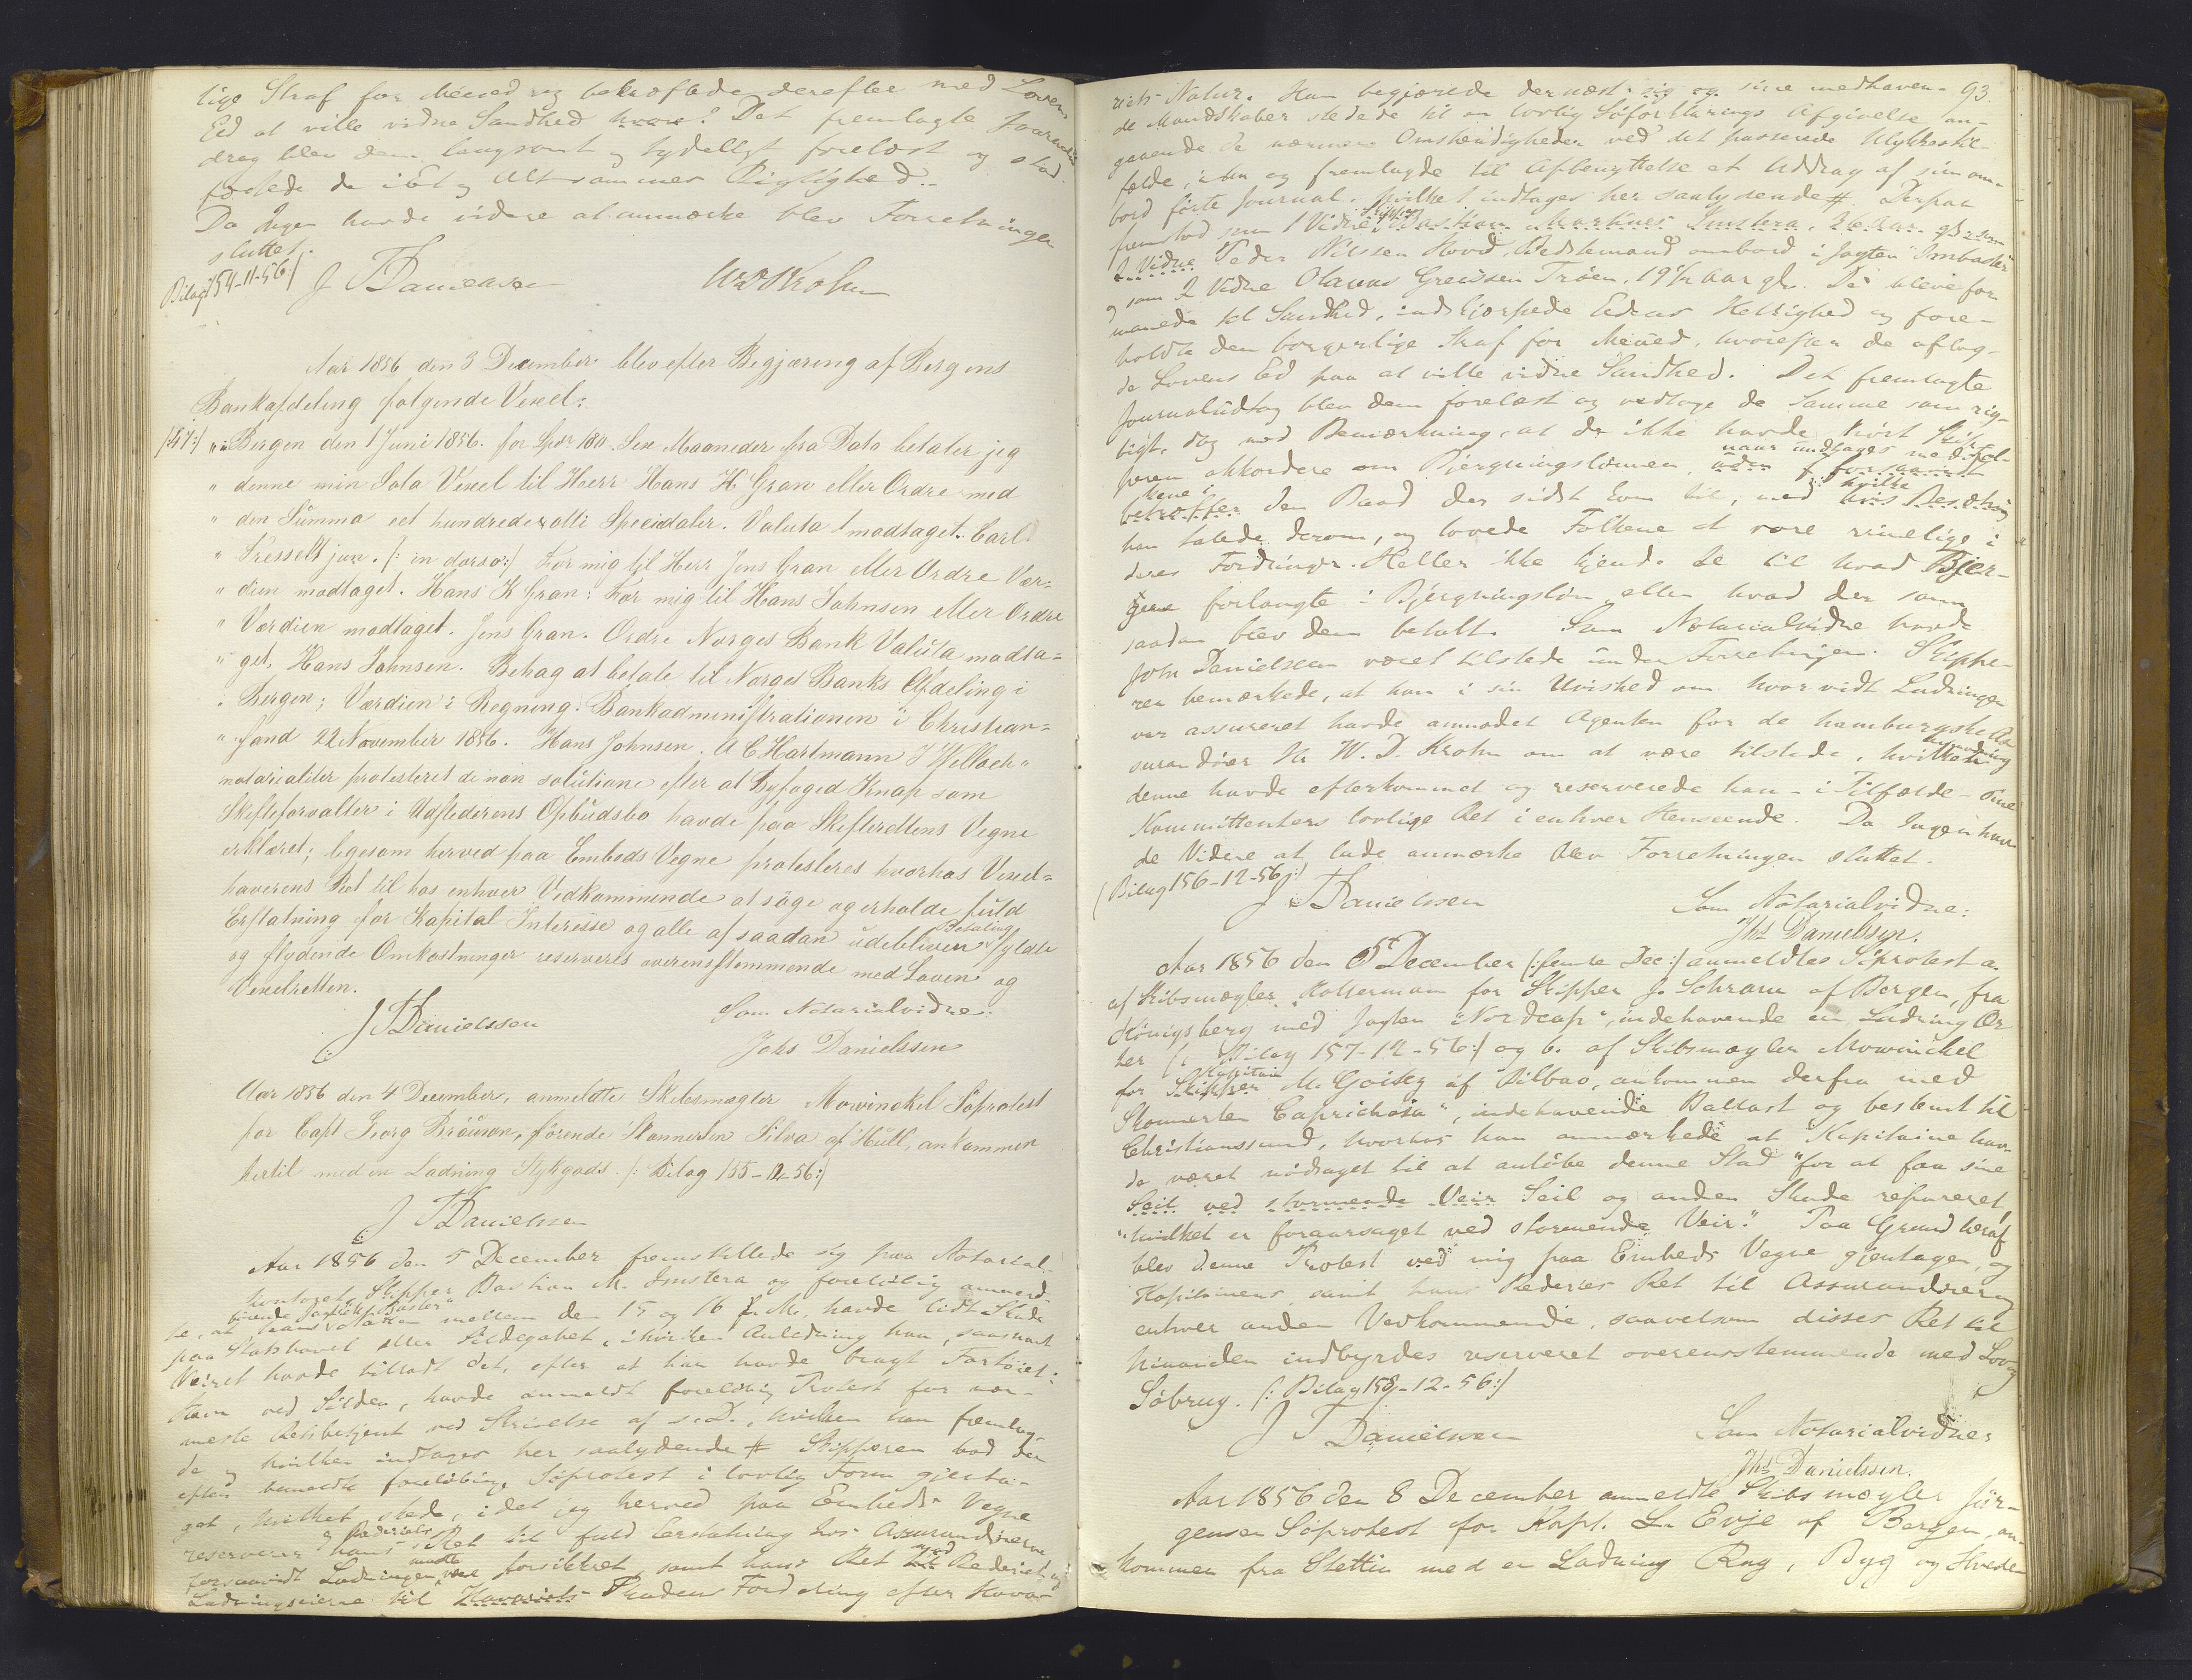 lige Straf for Meened og bekræftede derefter med Lovens
Eed at ville vidne Sandhed hvor? Det fremlagte Journalud-
drag blev dem langsomt og tydeligt forelæst og stad-
fæstede de i Et og Alt sammes Rigtighed.-
Da Ingen havde videre at anmærke blev Forretningen
sluttet.
Bilag 154-11-56/
J T Danielssen WDKrohn
Aar 1856 den 3 December blev efter Begjæring af Bergens
Bankafdeling følgende Vexel:
/:47:/ "Bergen den 1 Juni 1856. for Spdr 180. Sex Maaneder fra Dato betaler jeg
" denne min Sola Vexel til Herr Hans K Gran eller Ordre med
" den Summa eet hundrede otti Speciedaler. Valuta modtaget. Carl
" Tresselt jun. /: in dorso:/ For mig til Herr Jens Gran eller Ordre Vær=
" dien modtaget. Hans K Gran: For mig til Hans Johnsen eller Ordre
" Værdien modtaget. Jens Gran. Ordre Norges Bank Valuta modta=
" get, Hans Johnsen. Behag at betale til Norges Banks Afdeling i
" Bergen; Værdien i Regning. Bankadministrationen i Christian=
" sand 22 November 1856. Hans Johnsen. A C Hartmann J Wellech"
notarialiter protesteret de non solutione efter at Byfoged Knap som
Skifteforvalter i Udstederens Opbudsbo havde paa Skifterettens Vegne
erklæret; ligesom herved paa Embeds Vegne protesteres hvorhos Vexel=
haverens Ret til hos enhver Vedkommende at søge og erholde fuld
Erstatning for Kapital Interesse og alle af saadan udebleven Betaling fyldte
og flydende Omkostninger reserveres overensstemmende med Loven og
Vexelretten.
J T Danielssen Som Notarialvidne:
Johs Danielssen
Aar 1856 den 4 December, anmeldte Skibsmægler Mowinckel Søprotest
for Capt Georg Brøuson, førende Skonnerten Silva af Hull, ankommen
hertil med en Ladning Stykgods. /: Bilag 155-12-56:/
J T Danielssen
Aar 1856 den 5 December fremstillede sig paa Notarial-
kontoret Skipper Bastian M. Imstera og foreløbig anmeld-
te, at hans mellem den 15 og 16 f. M. havde lidt Skade
paa Stathavet eller Sildegabet, i hvilken Anledning han, saasnart
Veiret havde tilladt det, efter at han havde bragt Fartøiet i
Havn ved Silden, havde anmeldt foreløbig Protest for nær-
meste Retsbetjent ved Skrivelse af s. D., hvilken han fremlag-
de og hvilken indtages her saalydende # Skipperen bad der
efter bemeldte foreløbige Søprotest i lovlig Form gjenta-
get, hvilket skede, idet jeg herved paa Embeds Vegne
reserverer hans og Rederiets Ret til fuld Erstatning hos Assurandørerne
forsaavidt Ladningen maatte være forsikkret, samt hans Ret mod Rederiet og
Ladningseierne til Havariets Skadens Fordeling efter Hava-
93.
riets Natur. Han begjærede dernæst sig og sine medhaven-
de Mandskaber stedede til en lovlig Søforklarings Afgivelse an-
gaaende de nærmere Omstændigheder ved det passerede Ulykkestil-
fælde, og fremlagde til Afbenyttelse et Uddrag af sin om-
bord førte Journal. hvilket indtages her saalydende #. Derpaa
fremstod som 1 Vidne Skipper Bastian Martinus Imstera, 26 Aar gl. som
2 Vidne Peder Nilssen Hovd, Bedstemand ombord i Jagten "Johan Baster"
og som 2 Vidne Olavus Grevsen Trøen, 19½ Aar gl. De bleve for-
manede til Sandhed, indskjærpede Edens Hellighed og fore-
holdte den borgerlige Straf for Meened, hvorefter de aflag-
de Lovens Ed paa at ville vidne Sandhed. Det fremlagte
Journaludtog blev dem forelæst og vedtoge de Samme som rig-
tigt, dog med Bemærkning, at de ikke havde hørt Skip-
peren akkordere om Bjergningslønnen, naar undtages med Fol-
kene i den Baad der sidst kom til, med hvilke
han talede derom, og lovede Folkene at være rimelige i
deres Fordringer. Heller ikke kjendte de til hvad Bjer-
gerne forlangte i Bjergningsløn eller hvad der som
saadan blev dem betalt. Som Notarialvidne havde
John Danielssen været tilstede under Forretningen. Skippe-
ren bemærkede, at han i sin Uvished om hvorvidt Ladningen
var assureret havde anmodet Agenten for de hamburgske As-
surandører Hr W. D. Krohn om at være tilstede, hvilken Anmodning
denne havde efterkommet og reserverede han - i Tilfælde - sine
Kommittenters lovlige Ret i enhver Henseende. Da Ingen hav-
de Videre at lade anmærke blev Forretningen sluttet.
(Bilag 156-12-56:/
J T Danielssen Som Notarialvidne:
Jhs Danielssen.
Aar 1856 den 5t December /:femte Dec:/ anmeldtes Søprotest a.
af Skibsmægler Kollermann for Skipper J. Schram af Bergen, fra
Königsberg med Jagten "Nordcap", indehavende en Ladning Ær-
ter /: Bilag 157-12-56:/ og b. af Skibsmægler Mowinckel
for Kapitain M. Goitey af Bilbao, ankommen derfra med
Skonnerten "Caprichosa", indehavende Ballast og bestemt til
Christianssund, hvorhos han anmærkede at Kapitaine hav-
de været nødsaget til at anløbe denne Stad "for at faa sine
Seil ved stormende Veir Seil og anden Skade repareret,
"hvilket er foraarsaget ved stormende Veir." Paa Grund heraf
blev denne Protest ved mig paa Embeds Vegne gjentagen, og
Kapitainens samt hans Rederies Ret til Assurandører og
enhver anden Vedkommende, saavelsom disses Ret til
hinanden indbyrdes reserveret overensstemmende med Lov og
Søbrug. /: Bilag 158-12-56:/
J T Danielssen Som Notarialvidne:
Jhs Danielssen.
Aar 1856 den 8 December anmeldte Skibsmægler Jør-
gensen Søprotest for Kapt. L. Evje af Bergen, an-
kommen fra Stettin med en Ladning Rug, Byg og Hvede